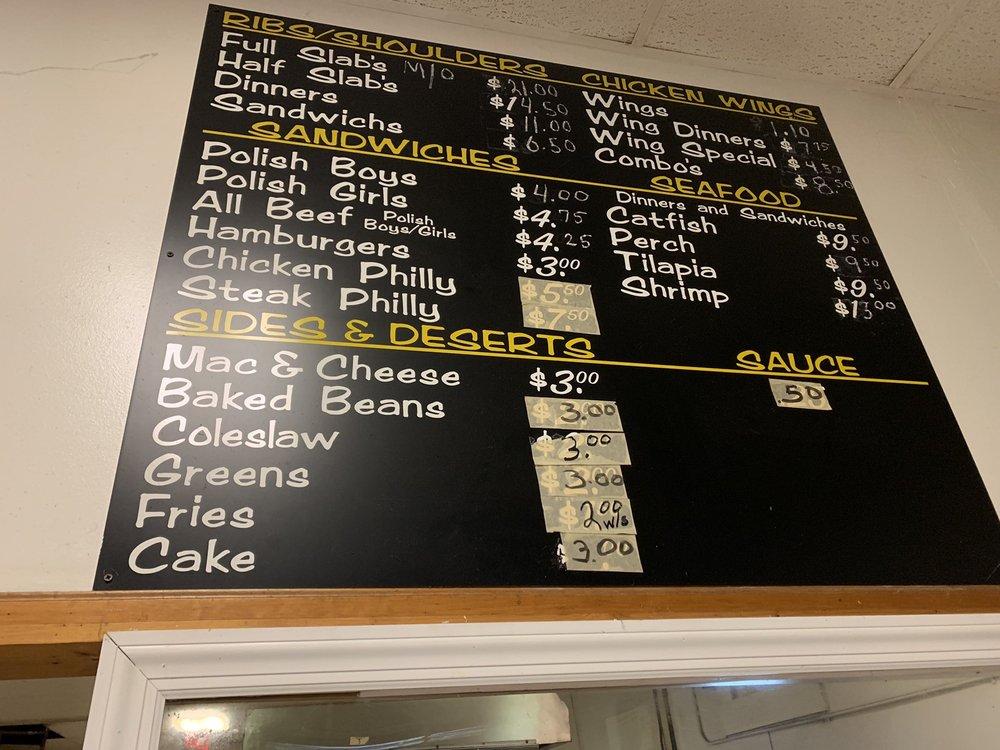 RIBS/SHOULDERS
Full Slab's M/O $21.00
Half Slab's $14.50
Dinners $11.00
Sandwichs $6.50
CHICKEN WINGS
Wings 1.10
Wing Dinners $7.75
Wing Special $4.50
Combo's $8.50
SANDWICHES
Polish Boys $4.00
Polish Girls $4.75
All Beef Polish Boys/Girls $4.25
Hamburgers $3.00
Chicken Philly $5.50
Steak Philly $7.50
SEAFOOD
Dinners and Sandwiches
Catfish $9.50
Perch $9.50
Tilapia $9.50
Shrimp $13.00
SIDES & DESERTS
Mac & Cheese $3.00
Baked Beans $3.00
Coleslaw 3.00
Greens 3.00
Fries $2.00 w/s
Cake 3.00
SAUCE
.50